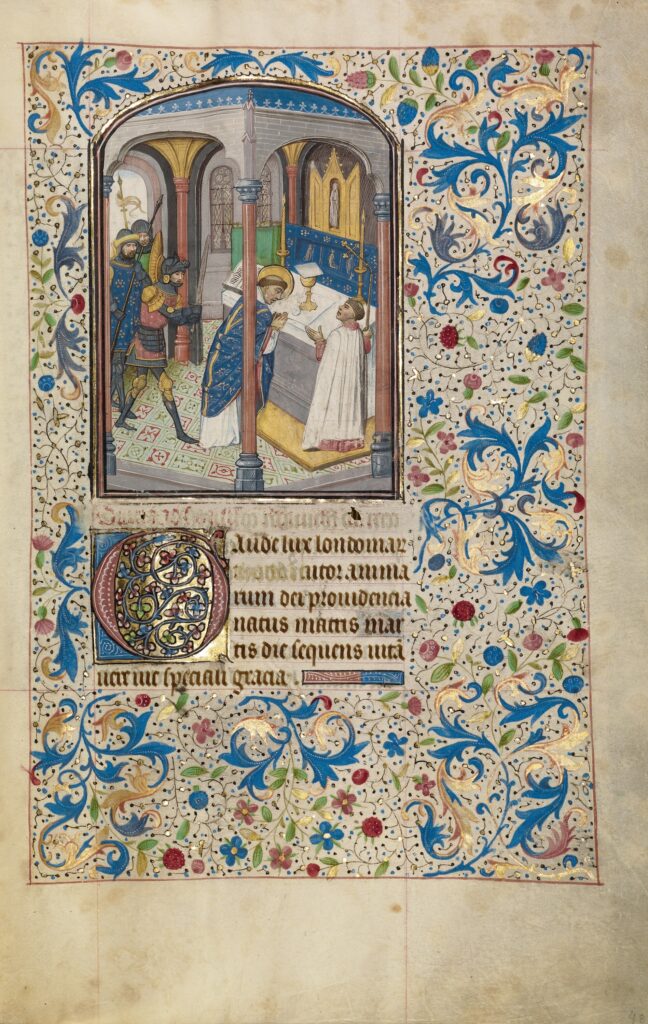 Gaude lux londoniar
tutor anima
rum dei providencia
natus matris mar
tis die sequens vita
vere vie speciali gracia
48